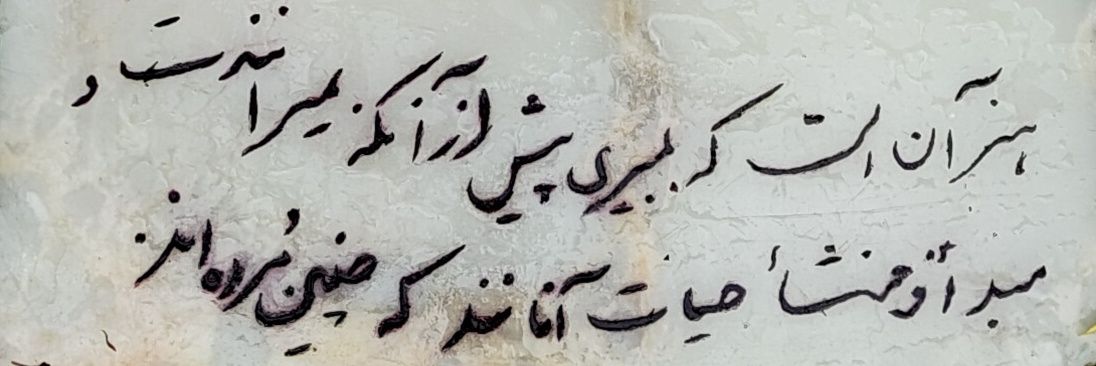 هنر آن است که بمیری پیش از آنکه بمیرانندت و
مبدأ و منشأ حیات آنانند که چنین مُرده‌اند.